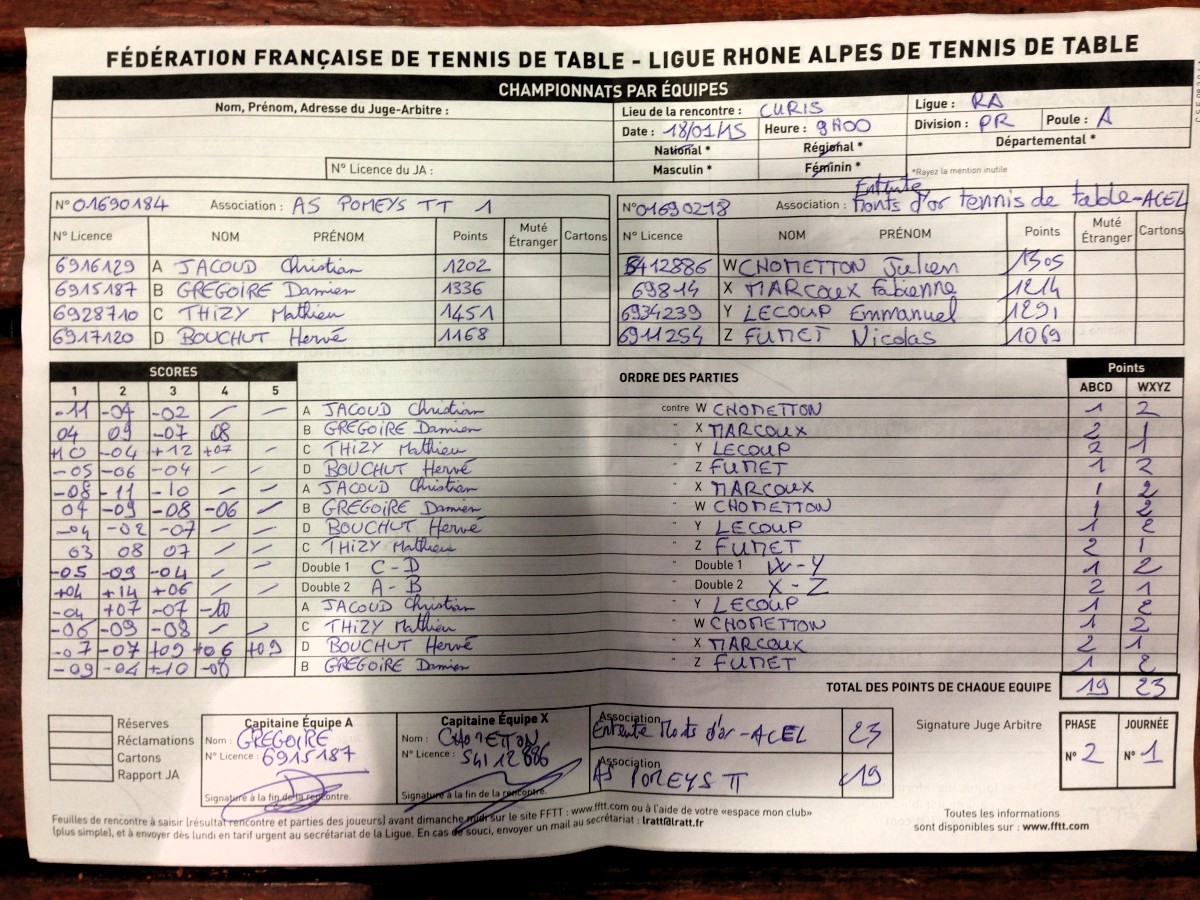 FÉDÉRATION FRANÇAISE DE TENNIS DE TABLE - LIGUE RHONE ALPES DE TENNIS DE TABLE
CHAMPIONNATS PAR ÉQUIPES
Nom, Prénom, Adresse du Juge-Arbitre :
N° Licence du JA :
Lieu de la rencontre : CURIS Ligue : RA
Date : 18/01/15 Heure : 9H00 Division : PR Poule : A
National * Régional * Départemental *
Masculin * Féminin * *Rayez la mention inutile
N° 01690184 Association : AS POMEYS TT 1
N° 01690218 Association : Entente Monts d'or tennis de table-ACEL
N° Licence NOM PRÉNOM Points Muté Étranger Cartons N° Licence NOM PRÉNOM Points Muté Étranger Cartons
6916129 A JACOUD Christian 1202 5412886 W CHOMETTON Julien 1305
6915187 B GREGOIRE Damien 1336 69814 X MARCOUX Fabienne 1214
6928710 C THIZY Mathieu 1451 6934239 Y LECOUP Emmanuel 1291
6917120 D BOUCHUT Hervé 1168 6911254 Z FUMET Nicolas 1069
SCORES ORDRE DES PARTIES Points
1 2 3 4 5 ABCD WXYZ
-11 -04 -02 / / A JACOUD Christian contre W CHOMETTON 1 2
04 09 -07 08 B GREGOIRE Damien " X MARCOUX 2 1
+10 -04 +12 +07 / C THIZY Mathieu " Y LECOUP 2 1
-05 -06 -04 / / D BOUCHUT Hervé " Z FUMET 1 2
-08 -11 -10 / / A JACOUD Christian " X MARCOUX 1 2
07 -09 -08 -06 / B GREGOIRE Damien " W CHOMETTON 1 2
-04 -02 -07 / / D BOUCHUT Hervé " Y LECOUP 1 2
03 08 07 / / C THIZY Mathieu " Z FUMET 2 1
-05 -09 -04 / / Double 1 C-D " Double 1 W-Y 1 2
+04 +14 +06 / / Double 2 A-B " Double 2 X-Z 2 1
-04 +07 -07 -10 A JACOUD Christian " Y LECOUP 1 2
-06 -09 -08 / / C THIZY Mathieu " W CHOMETTON 1 2
-07 -07 +09 +06 +09 D BOUCHUT Hervé " X MARCOUX 2 1
-09 -04 +10 -08 B GREGOIRE Damien " Z FUMET 1 2
TOTAL DES POINTS DE CHAQUE EQUIPE 19 23
Réserves
Réclamations
Cartons
Rapport JA
Capitaine Équipe A
Nom : GREGOIRE
N° Licence : 6915187
Signature à la fin de la rencontre.
Capitaine Équipe X
Nom : CHOMETTON
N° Licence : 5412886
Signature à la fin de la rencontre.
Association
Entente Monts d'or-ACEL 23
Association
AS POMEYS TT 19
Signature Juge Arbitre
PHASE JOURNÉE
N° 2 N° 1
Feuilles de rencontre à saisir (résultat rencontre et parties des joueurs) avant dimanche midi sur le site FFTT : www.fftt.com ou à l'aide de votre «espace mon club»
(plus simple), et à envoyer dès lundi en tarif urgent au secrétariat de la Ligue. En cas de souci, envoyer un mail au secrétariat : lratt@lratt.fr
Toutes les informations
sont disponibles sur : www.fftt.com